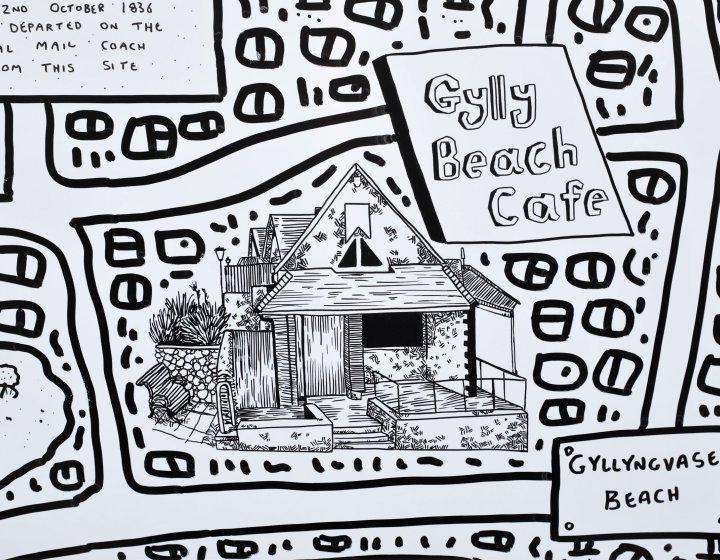 2ND OCTOBER 1836
DEPARTED ON THE
MAIL COACH
THIS SITE
Gylly
Beach
Cafe
GYLLYNGVASE
BEACH